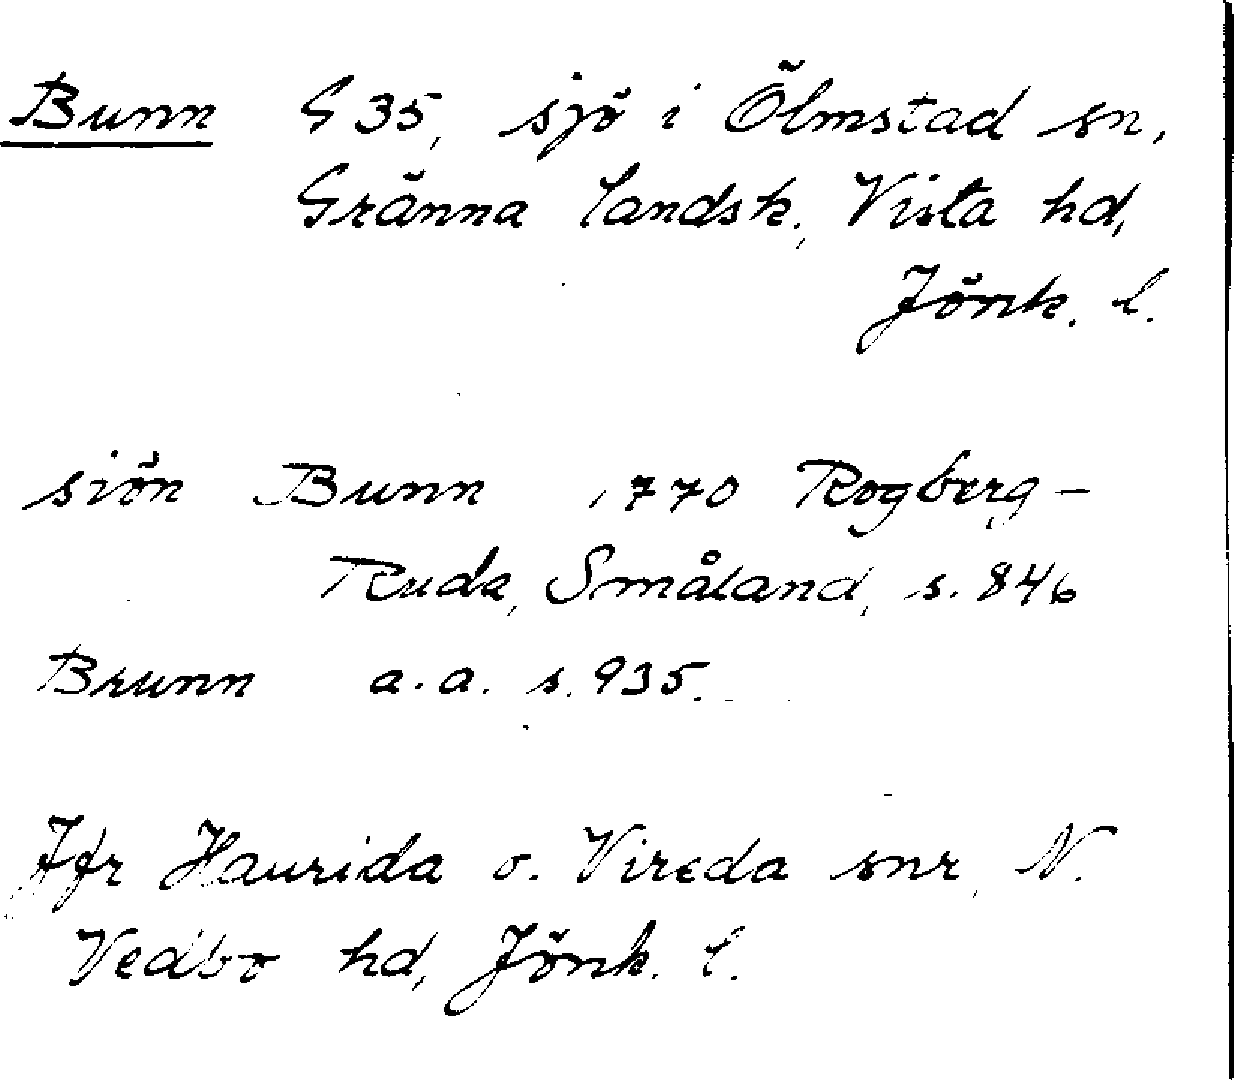 Bunn G 35, sjö i Ölmstad sn,
Gränna landsk., Vista hd,
Jönk. l.
siön Bunn 1770 Rogberg-
Ruda, Småland, s. 846
Brunn a.a. s. 935.
Jfr Haurida o. Vireda snr, N.
Vedbo hd, Jönk. l.